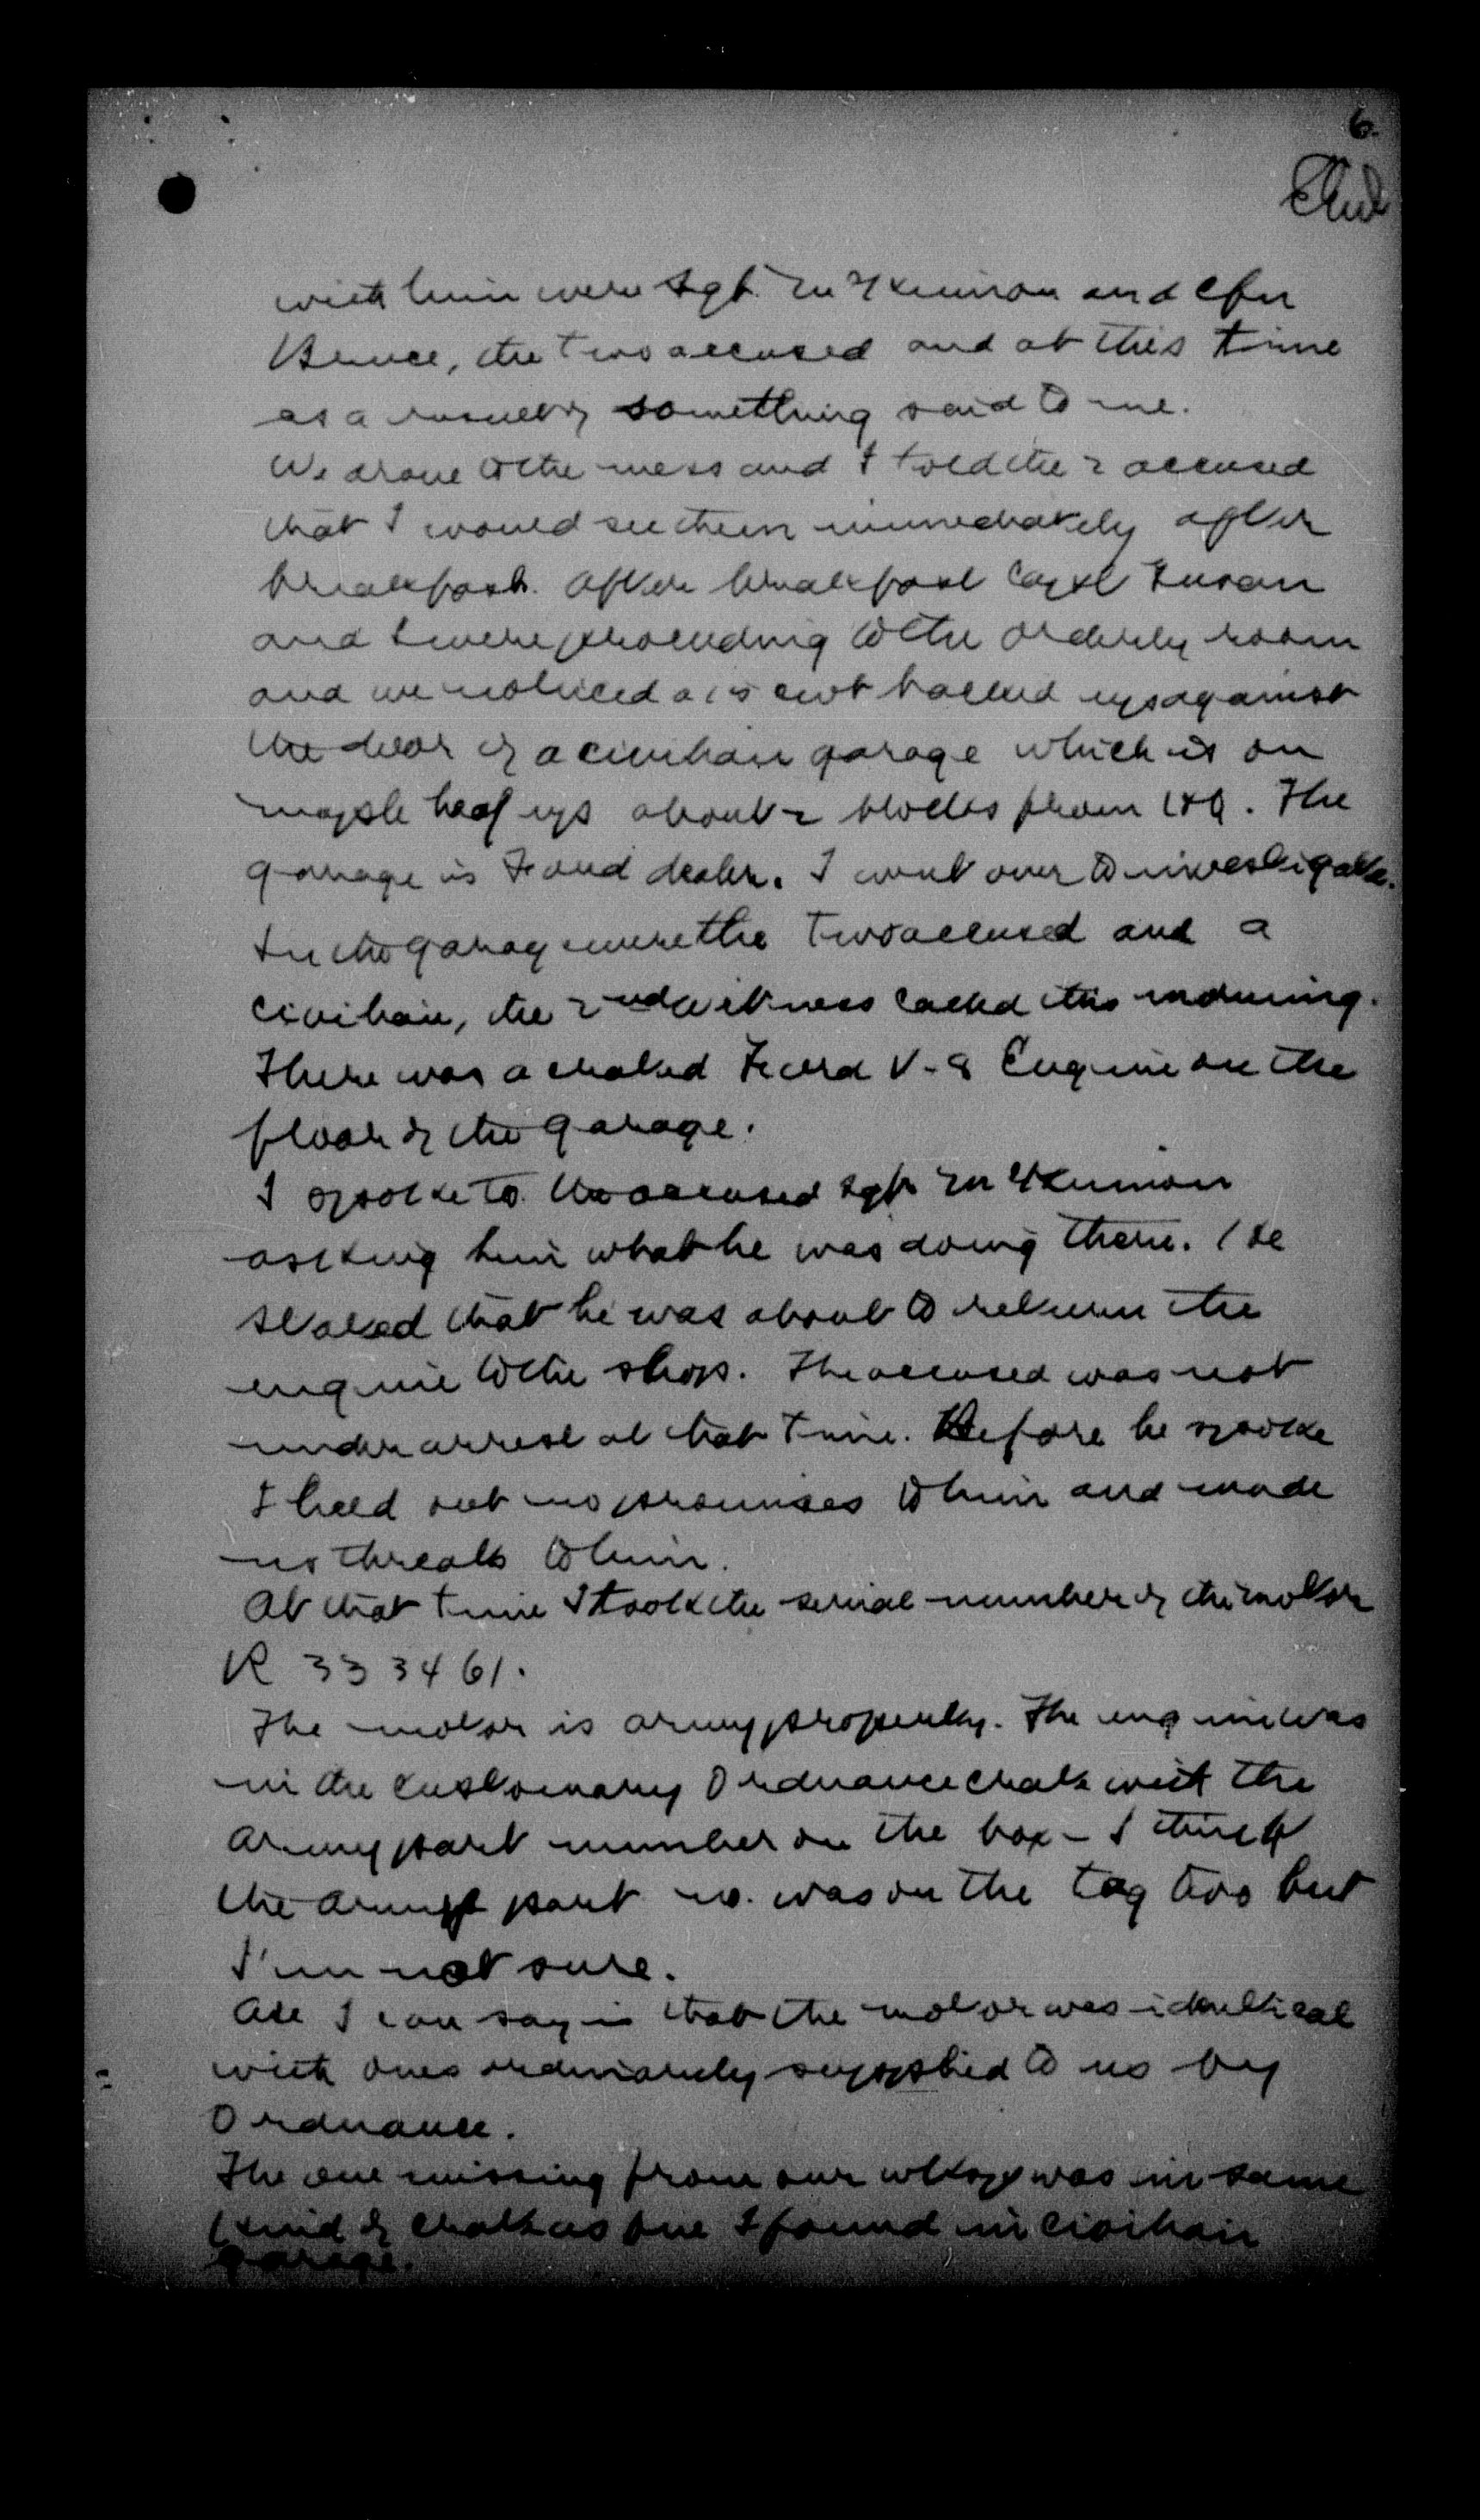 6.
with him were Sgt. McKinnon and Cfn
Bruce, the two accused and at this time
as a result of something said to me.
We drove to the mess and I told the 2 accused
that I would see them immediately after
breakfast. After breakfast Capt
and I were proceeding to the orderly room
and we noticed a 15 cwt backed up against
the door of a civilian garage which is on
maple leaf up about 2 blocks from HQ. The
garage is Ford dealer. I went over to investigate.
In the garage were the two accused and a
civilian, the 2nd witness called this morning.
There was a crated Ford V-8 Engine on the
floor of the garage.
I spoke to the accused Sgt McKinnon
asking him what he was doing there. He
stated that he was about to return the
engine to the shop. The accused was not
under arrest at that time. Before he spoke
I held out no promises to him and made
no threats to him.
At that time I took the serial number of the motor
R 333461.
The motor is army property. The engine was
in the customary Ordnance crate with the
army part number on the box - I think
the army part no. was on the tag too but
I'm not sure.
All I can say is that the motor was identical
with ones ordinarily supplied to us by
Ordnance.
The one missing from our wksp was in same
kind of crate as one I found in civilian
garage.